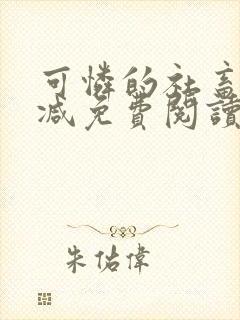 可憐的社畜
减免費閱讀
朱佑偉